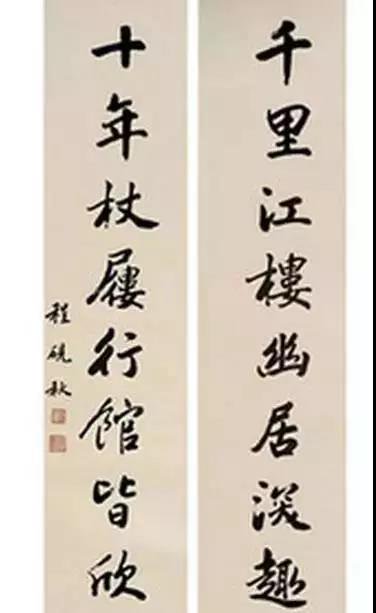 千里江樓幽居深趣
十年杖屨行館皆欣
程硯秋